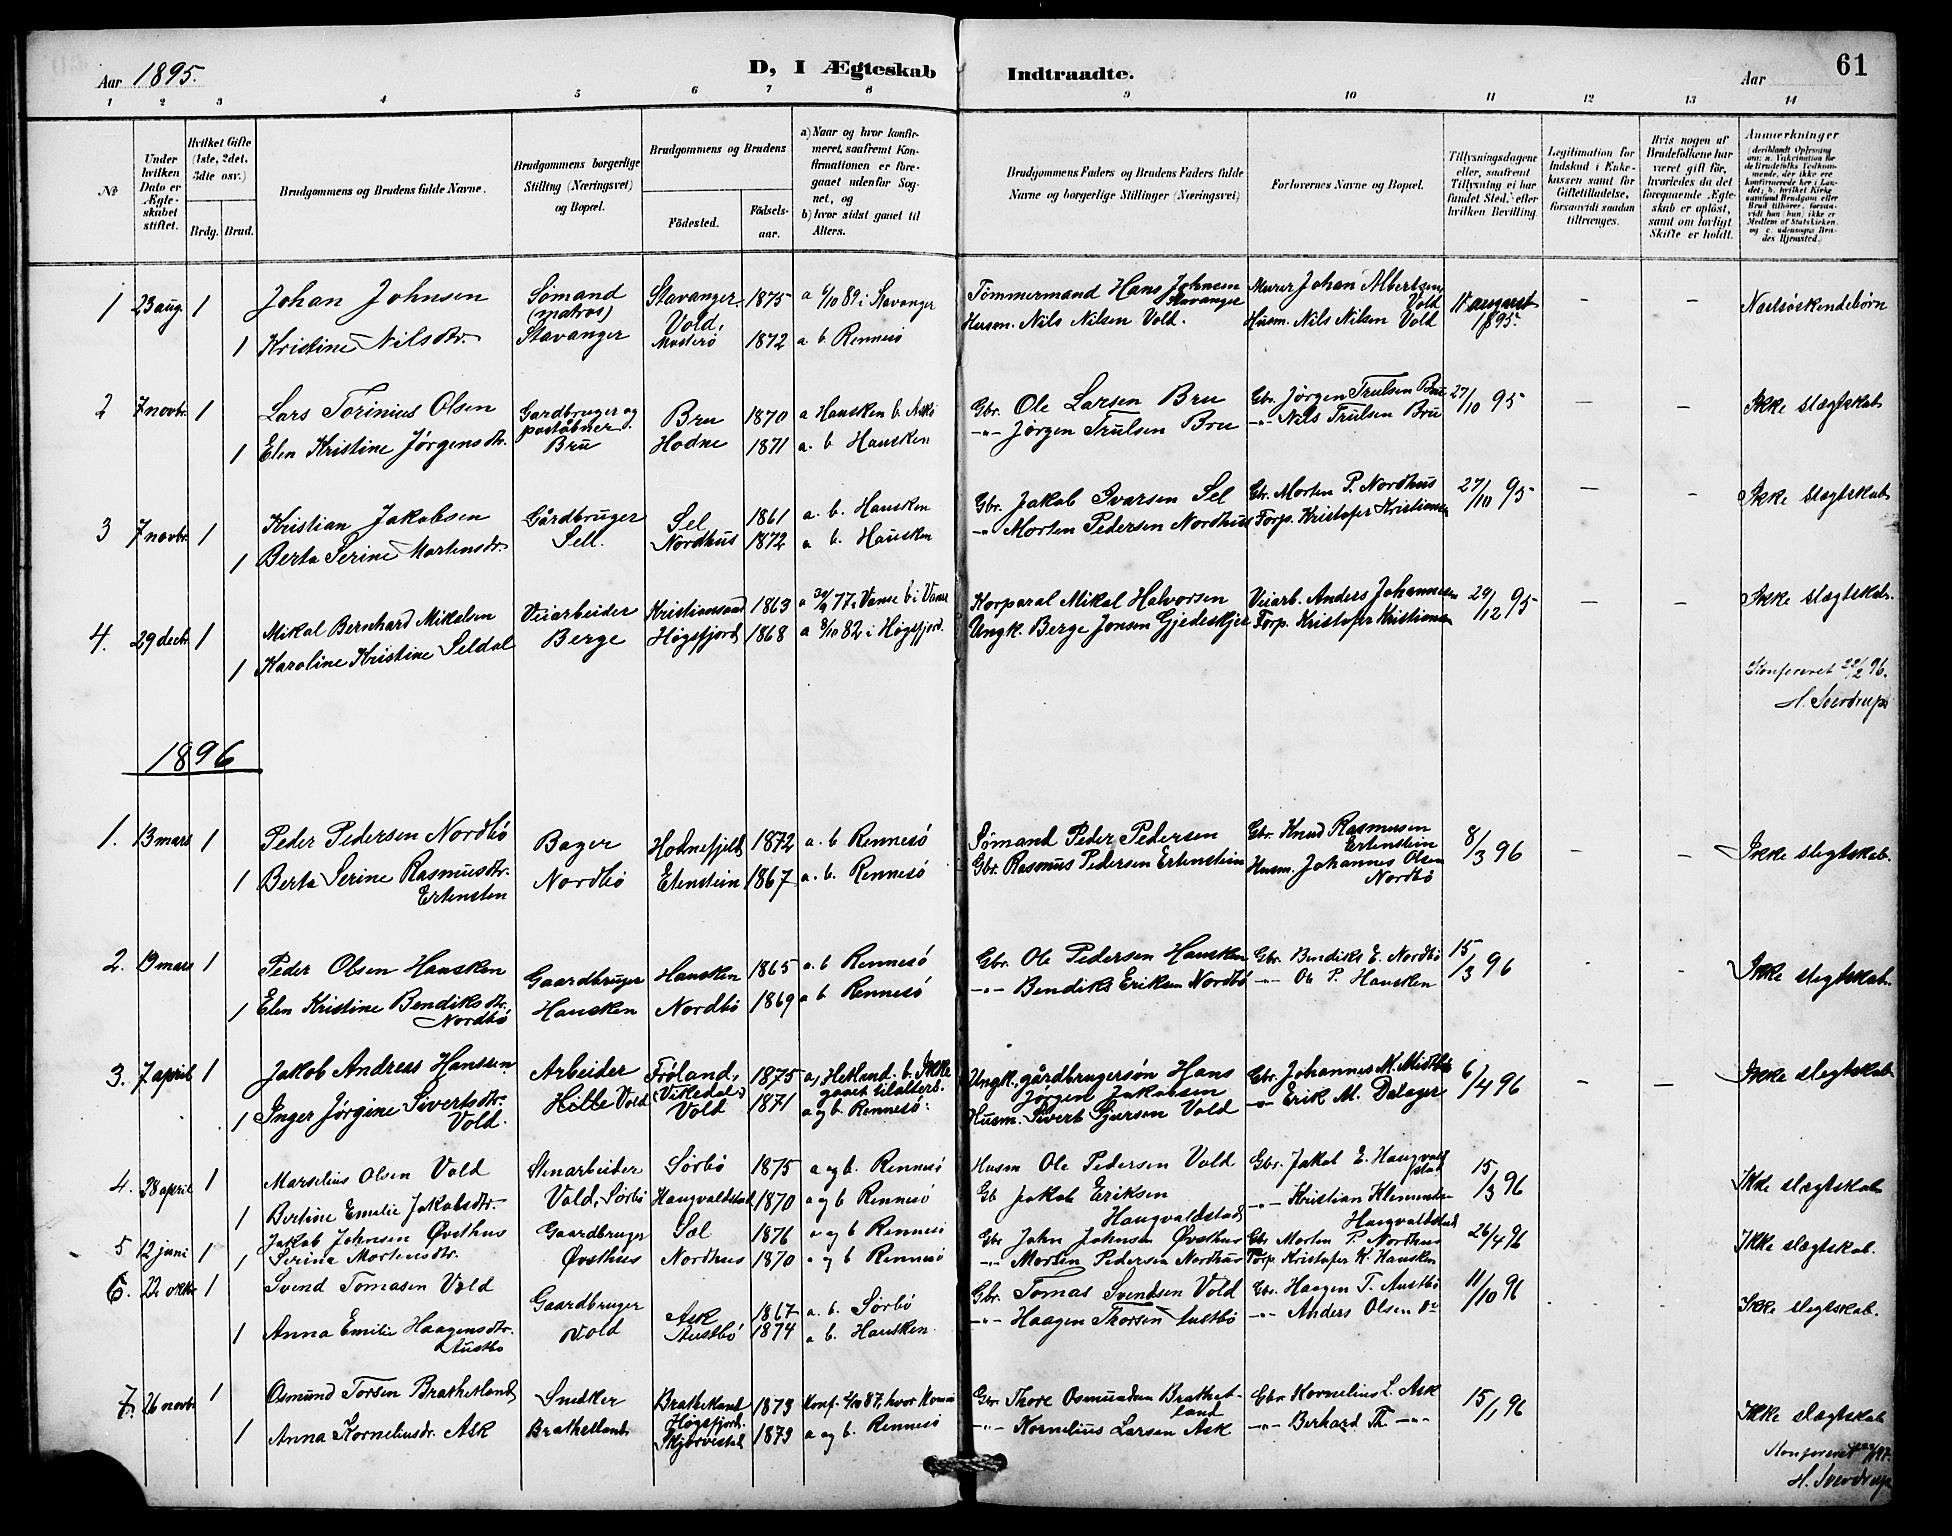 Aar 1895.
D, I Ægteskab Indtraadte.
Aar
61
1 2 3 4 5 6 7 8 9 10 11 12 13 14
No
Under hvilken Dato er Ægteskabet stiftet.
Hvilket Gifte (1ste, 2det, 3die osv.)
Brdg. Brud.
Brudgommens og Brudens fulde Navne.
Brudgommens borgerlige Stilling (Næringsvei) og Bopæl.
Brudgommens og Brudens
Födested.
Födselsaar.
a) Naar og hvor konfirmeret, saafremt Konfirmationen er foregaaet udenfor Sognet, og
b) hvor sidst gaaet til Alters.
Brudgommens Faders og Brudens Faders fulde Navne og borgerlige Stillinger (Næringsvei)
Forlovernes Navne og Bopæl.
Tillysningsdagene eller, saafremt Tillysning ei har fundet Sted, efter hvilken Bevilling.
Legitimation for Indskud i Enkekassen samt for Giftetilladelse, forsaavidt saadan tiltrænges.
Hvis nogen af Brudefolkene har været gift før, hvorledes da det foregaaende Ægteskab er opløst, samt om lovligt Skifte er holdt.
Anmerkninger
1 23 aug. 1 Johan Johnsen Sømand (matros) Stavanger 1875 a 6/10 89 i Stavanger Tömmermand Hans Johnsen Stavanger Murer Johan Albertsen Vold 11 august 1895. - - Næstsøskendebørn
1 Kristine Nilsdtr. Stavanger Vold, Mosterö 1872 a b Rennesö Husm. Nils Nilsen Vold. Husm. Nils Nilsen Vold
2 7 novbr. 1 Lars Torinius Olsen Gardbruger og poståbner Bru 1870 a Hausken b. Gbr. Ole Larsen Bru Gbr. Jørgen Trulsen Bru 27/10 95 - - Ikke slægtskab
1 Elen Kristine Jørgensdtr. Bru Hodne 1871 a. b Hausken -"- Jørgen Trulsen Bru -"- Nils Trulsen Bru
3 7 novbr. 1 Kristian Jakobsen Gårdbruger Sel 1861 a. b. Hausken Gbr. Jakob Ivarsen Sel Gbr. Morten P. Nordhus 27/10 95 - - Ikke slægtskab
1 Berta Serine Mortensdtr. Sell. Nordhus 1872 a b. Hausken -"- Morten Pedersen Nordhus Forp. Kristofer Kristiansen
4. 29 decbr. 1 Mikal Bernhard Mikalsen Veiarbeider Kristiansand 1863 77 i Vanse b i Vanse Korporal Mikal Halvorsen Veiarb. Anders Johannesen 29/12 95 - - Ikke slægtskab.
1 Karoline Kristine Seldal Berge Høgsfjord 1868 a 8/10 82 i Høgsfjord. Ungk. Berge Jonsen Gjedeskjer Forp. Kristofer Kristiansen
Konfereret 22/2 96.
H. Sverdrup
1896
1. 13 mars 1 Peder Pedersen Nordbö Bager Hodnefjeld 1872 a. b Rennesö Sømand Peder Pedersen Gbr. Knud Rasmusen Ertenstein 8/3 96 - - Ikke slegtskab.
1 Berta Serine Rasmusdtr. Ertensten Nordbö Etenstein 1867 a. b. Rennesö Gbr. Rasmus Pedersen Ertenstein Husm. Johannes Olsen Nordbö
2. 19 mars 1 Peder Olsen Hausken Gaardbruger Hausken 1865 a. b Rennesö Gbr. Ole Pedersen Hausken Gbr. Bendiks E. Nordbö 15/3 96 - - Ikke slegtskab
1 Elen Kristine Bendiksdtr. Nordbö Hausken Nordbö 1869 a b Rennesö -"- Bendiks Eriksen Nordbö -"- Ole P. Hausken
3. 7 april 1 Jakob Andreas Hanssen Arbeider Frøland, (Vikedal) 1875 a, Hetland. b. Ikke gaaet til alters. Ungk., gårdbrugersøn Hans Jørgen Jakobsen Gbr. Johannes M. Midtbö 6/4 96 - - Ikke slegtskab
1 Inger Jörgine Sivertsdtr. Vold. Hille Vold Vold 1871 a og b. Rennesö. Husm. Sivert Gjersen Vold -"- Erik M. Dalager
4. 28 april 1 Marselius Olsen Vold Stenarbeider Sørbö 1875 a og b. Rennesö Husm Ole Pedersen Vold Gbr. Jakob E. Haugvaldstad 15/3 96 Ikke slegtskab
1 Bertine Emelie Jakobsdtr. Vold, Sørbö Haugvaldstad 1870 a og b Rennesö Gb Jakob Eriksen Haugvaldstad -"- Kristian Klemmetsen Haugvaldstad
5 12 juni 1 Jakob Johnsen Øvsthus Gaardbruger Sel 1876 a og b Rennesö Gbr John Johnsen Øvsthus Gbr Morten P. Nordhus 26/4 96 Ikke slægtskab.
1 Serina Mortensdtr. Øvsthus Nordhus 1870 a og b Rennesö -"- Morten Pedersen Nordhus Forp Kristofer K. Hausken
6. 22 oktbr 1 Svend Tomasen Vold Gaardbruger Ask 1867 a. b. Sørbö Gbr. Tomas Svendsen Vold Gbr. Haagen T. Austbö 11/10 96 Ikke slægtskab.
1 Anna Emilie Haagensdtr. Austbø Vold Austbö 1874 a b. Hausken -"- Haagen Thorsen Austbö -"- Anders Olsen do
7. 26 novbr 1 Osmund Torsen Brathetland Snedker Brathetland Høgsfjord. 1873 Konf. 87, hvor Gbr. Thore Osmundsen Brathetland Gbr Kornelius L. Ask 15/ 96 Ikke slægtskab
1 Anna Korneliusdr. Ask Brathetland Skjørvestad 1873 a og b. Rennesö -"- Kornelius Larsen Ask -"- Berhard Th -"-
Konfereret 97.
H. Sverdrup